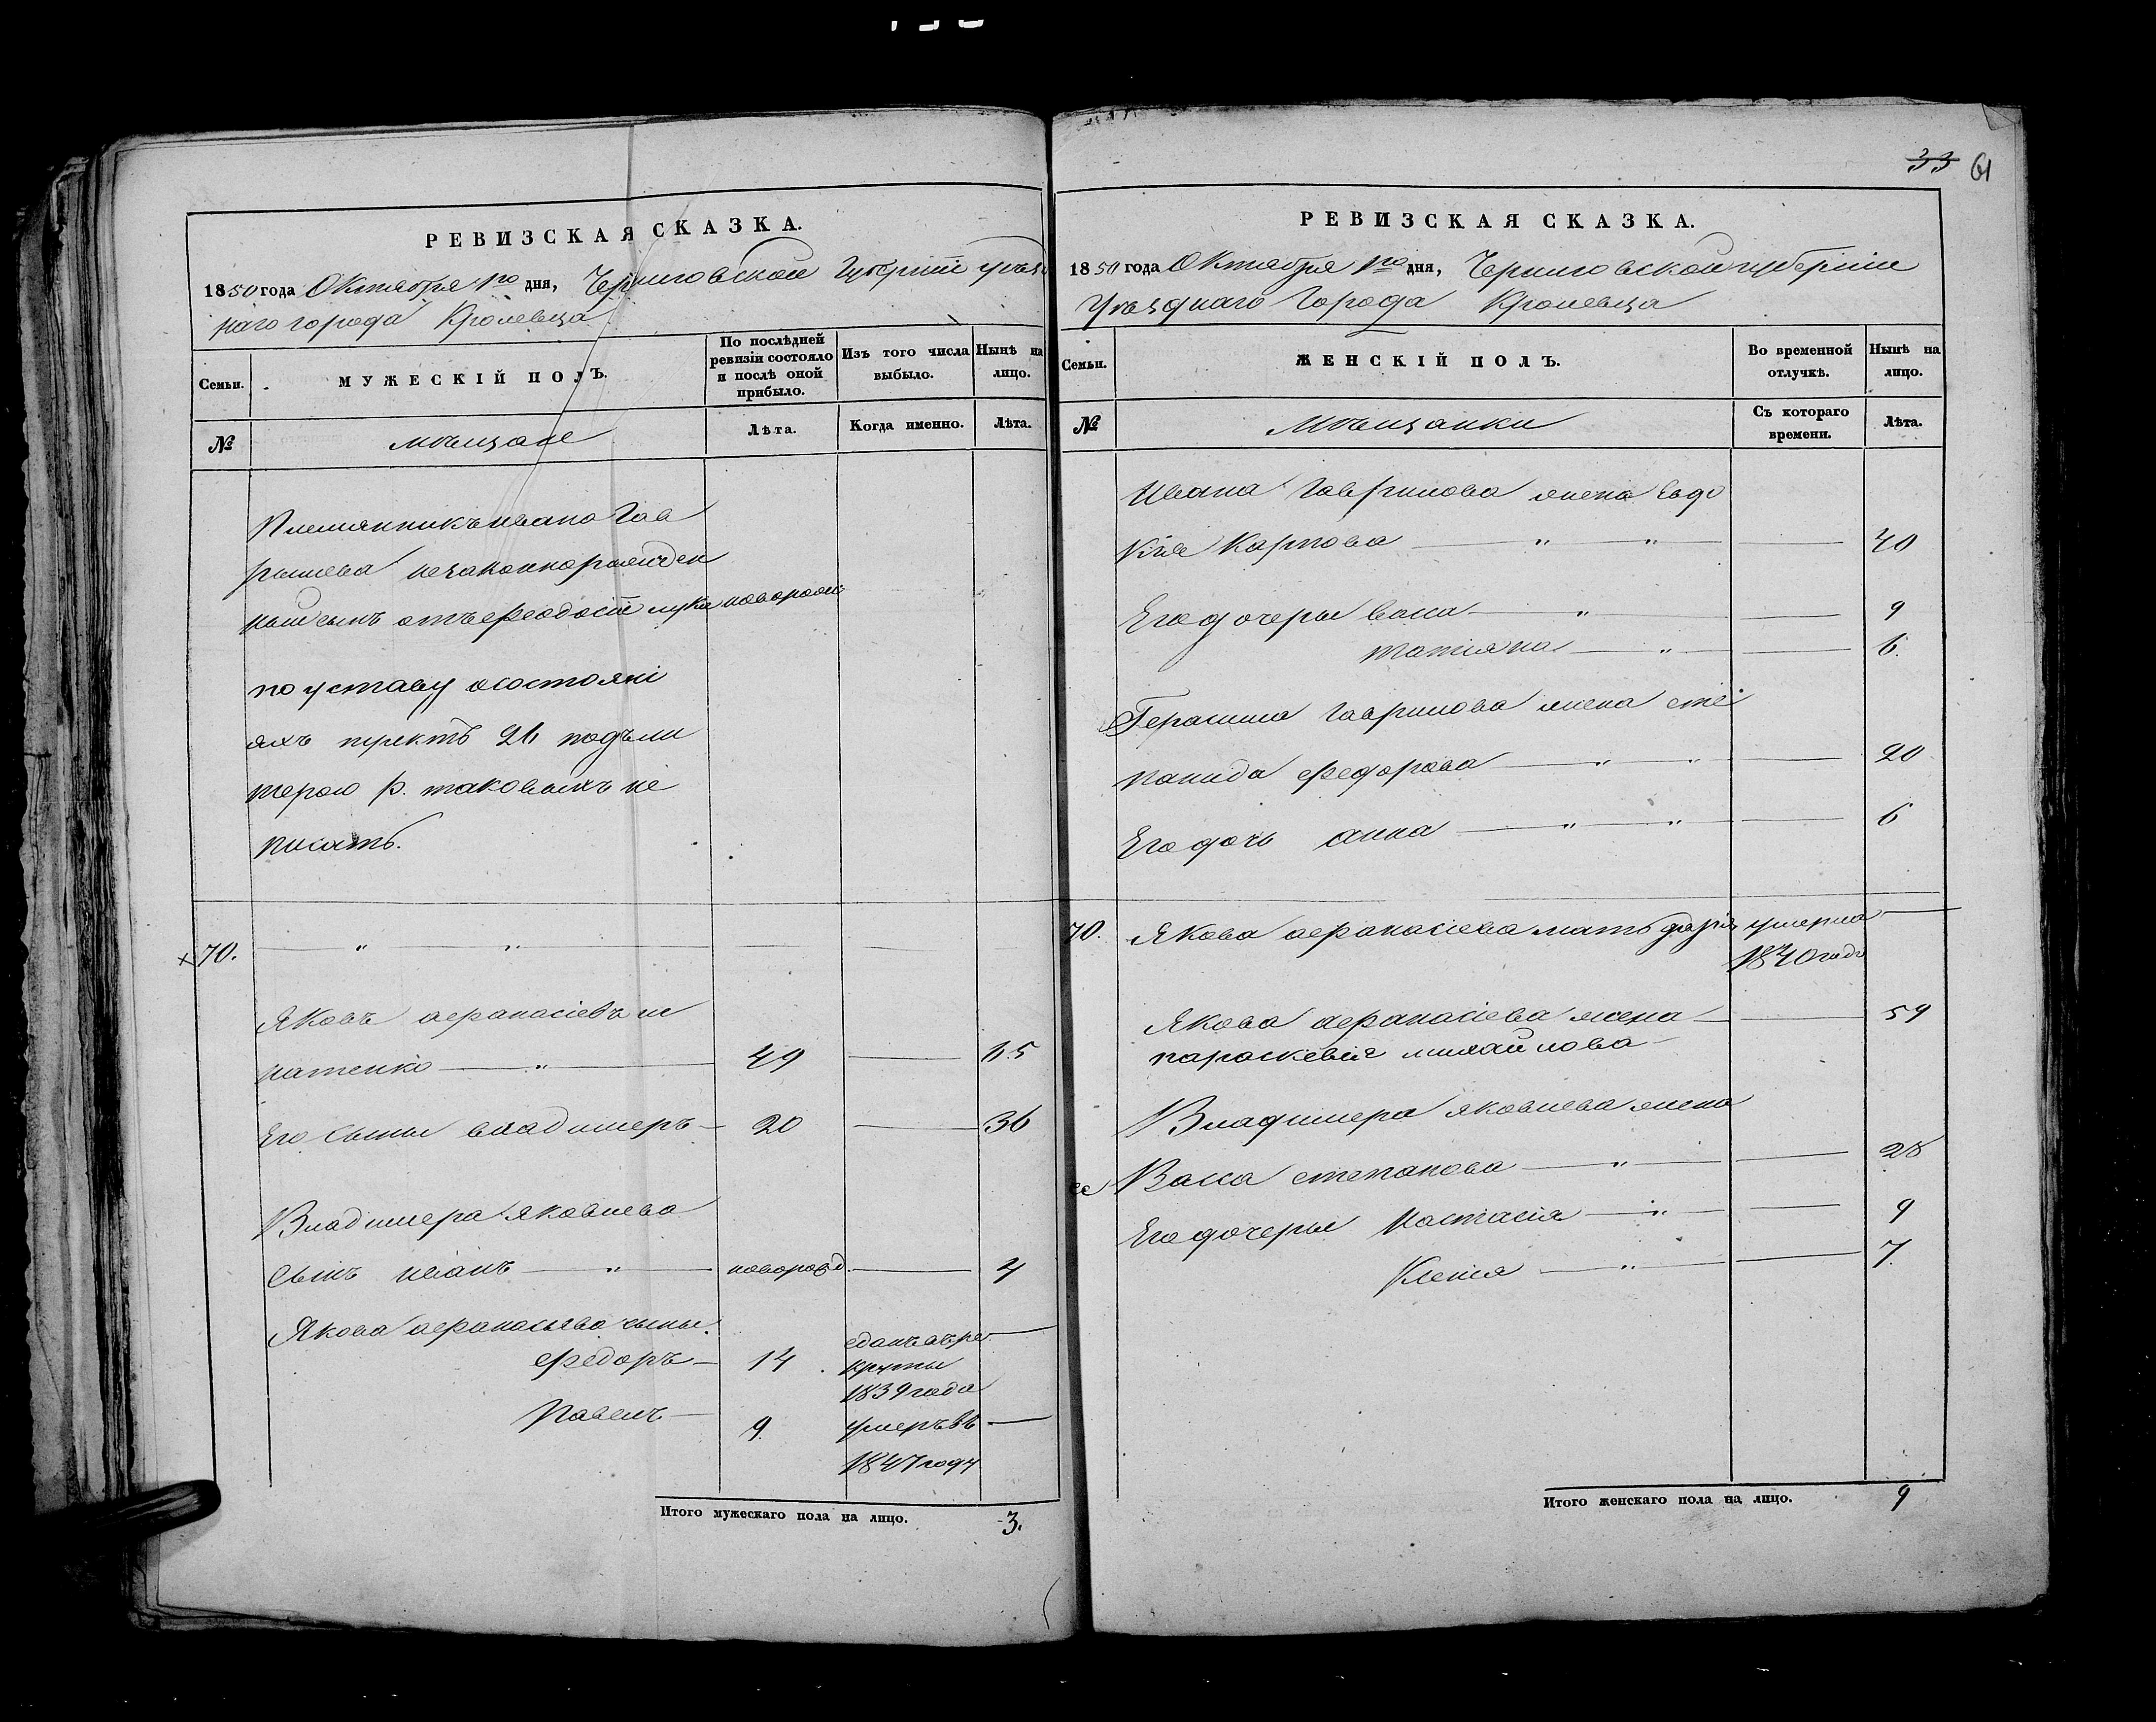 33 61
РЕВИЗСКАЯ СКАЗКА.
1850 года Октября 1го дня, Черниговской Губерніи уѣзд
наго города Кролевца
Семьи.
МУЖЕСКІЙ ПОЛЪ.
По послѣдней ревизіи состояло и послѣ оной прибыло.
Изъ того числа выбыло.
Нынѣ на лицо.
№
мѣщане
Лѣта.
Когда именно.
Лѣта.
Племянникъ ивана Гав
рылева незаконнорожден
ный сынъ отъ феодосіи лука новорож
по уставу осостояні
яхъ пунктъ 26 подъ ли
терою р. таковыхъ не
писать.
70. — " — " —
Яковъ афанасіевъ
натенко — " — 49 — 65
Его сыны владимеръ — 20 — 36
Владимера яковлева
сынъ иванъ — " — новорожд. — 4
Якова афанасьева сыны.
федоръ — 14 сданъ въ ре
круты
1839 года —
Павелъ — 9 умеръ въ —
1847 году
Итого мужескаго пола на лицо. 3.
РЕВИЗСКАЯ СКАЗКА.
1850 года Октября 1го дня, Черниговской губерніи
Уѣзднаго Города Кролевца
Семьи.
ЖЕНСКІЙ ПОЛЪ.
Во временной отлучкѣ.
Нынѣ на лицо.
№
Мѣщанки
Съ котораго времени.
Лѣта.
Ивана Гаврилова жена Евдо
кія Карпова — " — " — 40
Его дочеры васа — " — 9
татіяна — " — 6
Герасима гаврилова жена сте
панида федорова — " — " — 20
Его дочь анна — " — " — 6
70. Якова афанасіева мать дарія умерла —
1840 года
Якова афанасіева жена — 59
параскевія михайлова —
Владимера яковлева жена
Васса степанова — " — 28
Его дочеры Настасія — " — 9
Клетя — " — 7.
Итого женскаго пола на лицо. 9